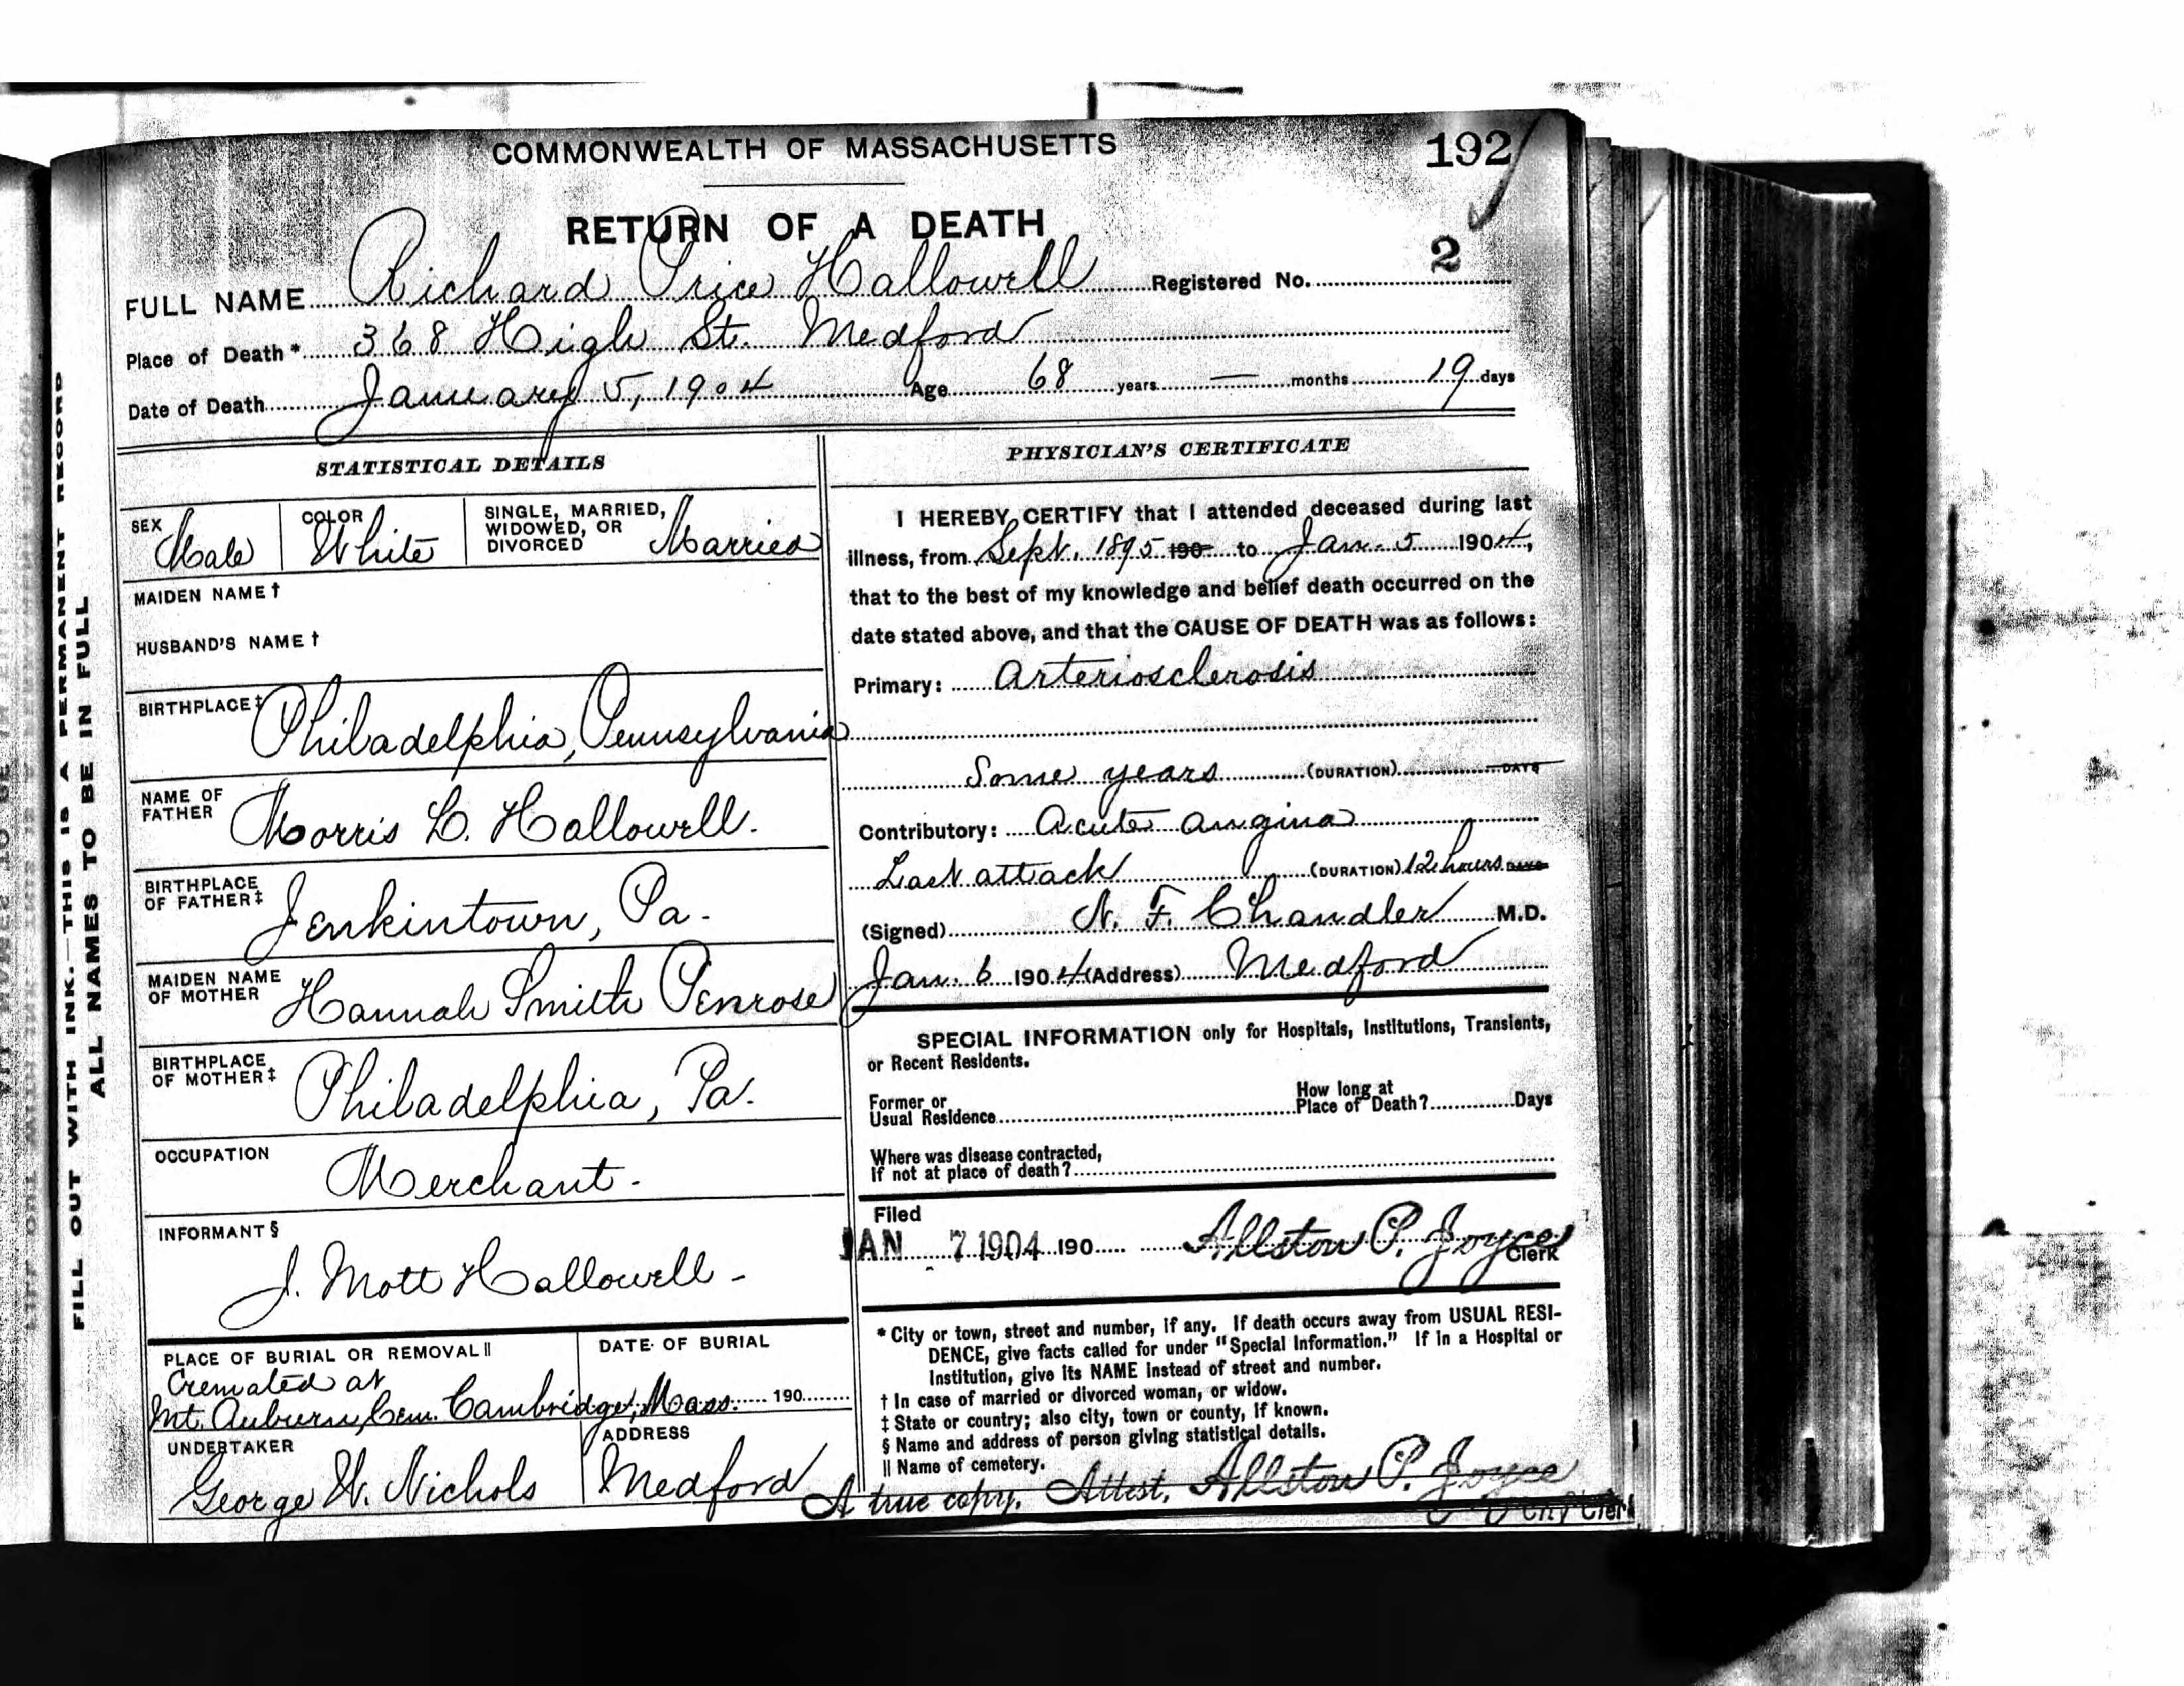 COMMONWEALTH OF MASSACHUSETTS
192
RETURN OF A DEATH
2
FULL NAME Richard Price Hallowell Registered No.
Place of Death* 368 High St. Medford
Date of Death January 5, 1904 Age 68 years — months 19 days
FILL OUT WITH INK.—THIS IS A PERMANENT RECORD
ALL NAMES TO BE IN FULL
STATISTICAL DETAILS
SEX Male
COLOR White
SINGLE, MARRIED,
WIDOWED, OR
DIVORCED Married
MAIDEN NAME †
HUSBAND'S NAME †
BIRTHPLACE ‡ Philadelphia, Pennsylvania
NAME OF
FATHER Morris L. Hallowell.
BIRTHPLACE
OF FATHER ‡ Jenkintown, Pa.
MAIDEN NAME
OF MOTHER Hannah Smith Penrose
BIRTHPLACE
OF MOTHER ‡ Philadelphia, Pa.
OCCUPATION Merchant.
INFORMANT §
J. Mott Hallowell -
PLACE OF BURIAL OR REMOVAL ||
DATE OF BURIAL
Cremated at
Mt. Auburn, Cem. Cambridge, Mass. 190
UNDERTAKER
George W. Nichols
ADDRESS
Medford
PHYSICIAN'S CERTIFICATE
I HEREBY CERTIFY that I attended deceased during last
illness, from Sept. 1895 190 to Jan. 5 1904,
that to the best of my knowledge and belief death occurred on the
date stated above, and that the CAUSE OF DEATH was as follows:
Primary: Arteriosclerosis
Some years (DURATION) DAYS
Contributory: Acute angina
Last attack (DURATION) 12 hours DAYS
(Signed) N. F. Chandler M.D.
Jan. 6 1904 (Address) Medford
SPECIAL INFORMATION only for Hospitals, Institutions, Transients,
or Recent Residents.
Former or
Usual Residence
How long at
Place of Death? Days
Where was disease contracted,
If not at place of death?
Filed
JAN 7 1904 190 Allston P. Joyce
Clerk
* City or town, street and number, if any. If death occurs away from USUAL RESI-
DENCE, give facts called for under "Special Information." If in a Hospital or
Institution, give its NAME instead of street and number.
† In case of married or divorced woman, or widow.
‡ State or country; also city, town or county, if known.
§ Name and address of person giving statistical details.
|| Name of cemetery.
A true copy. Attest, Allston P. Joyce
City Clerk